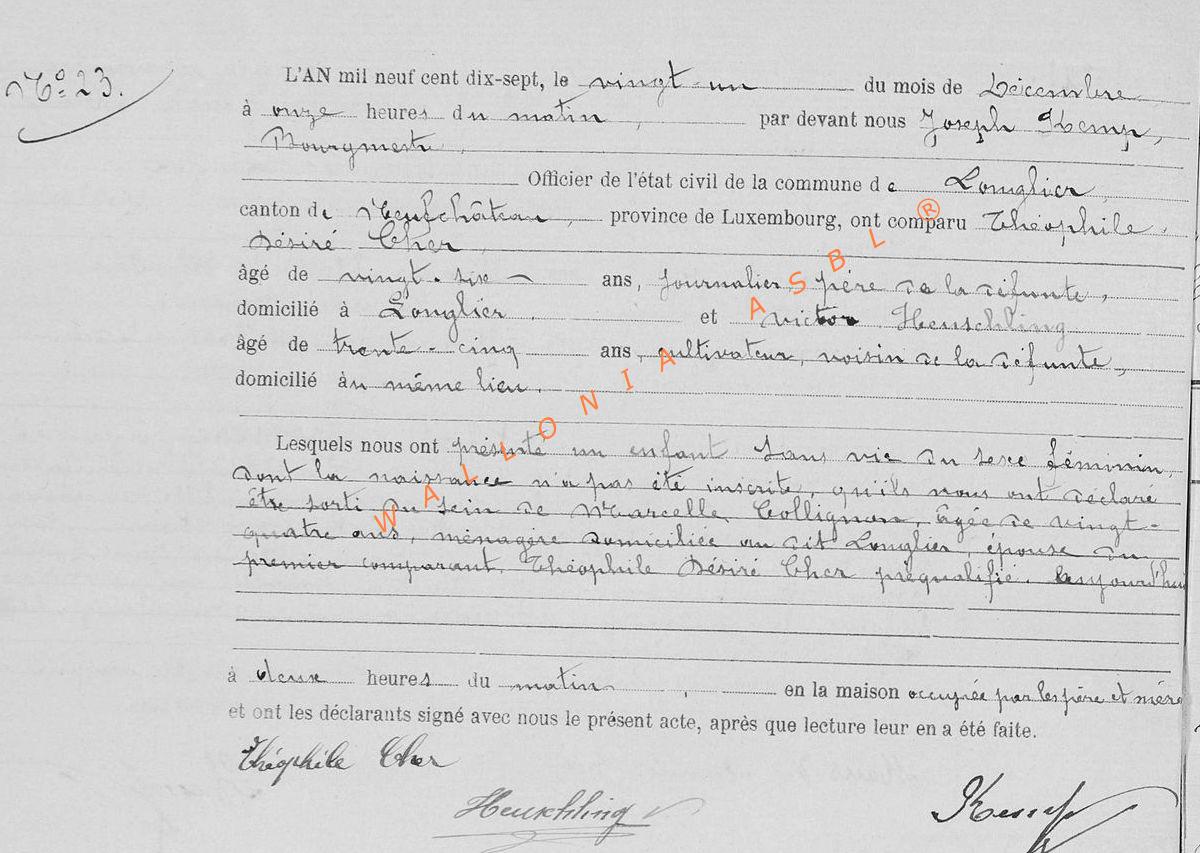 N° 23.
L'AN mil neuf cent dix-sept, le vingt-un du mois de Décembre,
à onze heures du matin, par devant nous Joseph Kemp,
Bourgmestre,
Officier de l'état civil de la commune de Longlier,
canton de Neufchâteau, province de Luxembourg, ont comparu Théophile
Désiré Cher
âgé de vingt-six ans, journalier, père de la défunte,
domicilié à Longlier, et Victor Heuschling
âgé de trente-cinq ans, cultivateur, voisin de la défunte,
domicilié au même lieu.
Lesquels nous ont présenté un enfant sans vie du sexe féminin,
dont la naissance n'a pas été inscrite, qu'ils nous ont déclaré
être sorti du sein de Marcelle Collignon, âgée de vingt-
quatre ans, ménagère domiciliée au dit Longlier, épouse du
premier comparant Théophile Désiré Cher préqualifié, aujourd'hui
à deux heures du matin, en la maison occupée par les père et mère
et ont les déclarants signé avec nous le présent acte, après que lecture leur en a été faite.
Théophile Cher
Heuschling
Kemp
WALLONIA ASBL ®